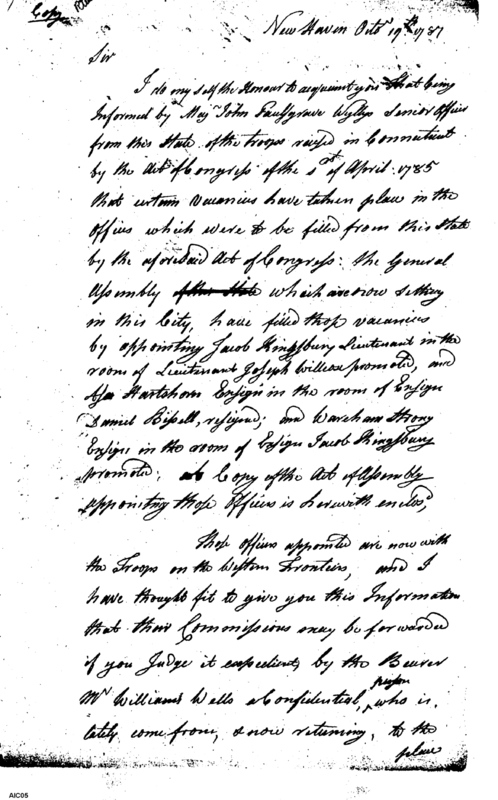 Copy
New Haven Octr 19th 1787
Sir
I do my self the Honour to acquaint you that being
Informed by Majr John Palsgrave Wyllys Senior Officer
from this State of the troops raised in Connecticut
by the Act of Congress of the 1st of April 1785
that certain vacancies have taken place in the
Offices which were to be filled from this State
by the aforesaid Act of Congress: the General
Assembly of this State which are now sitting
in this City, have filled those vacancies
by appointing Jacob Kingsbury Lieutenant in the
room of Lieutenant Joseph Willcox promoted, and
Asa Hartshorn Ensign in the room of Ensign
Daniel Bissell, resigned; and Wareham Strong
Ensign in the room of Ensign Jacob Kingsbury
promoted; Copy of the Act of Assembly
appointing those Officers is herewith enclosd,
Those officers appointed are now with
the Troops on the Western Frontiers, and I
have thought fit to give you this Information
that their Commissions may be forwarded
if you Judge it expedient, by the Bearer
Mr William Wells a Confidential person, who is
lately come from, & now returning, to the
place
AIC05